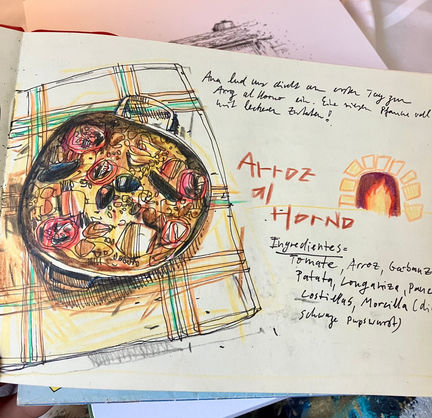 Ana lud uns direkt am ersten Tag zum
Arroz al Horno ein. Eine riesen Pfanne voll
mit leckeren Zutaten!
ARROZ
al
HORNO
Ingredientes=
Tomate, Arroz, Garbanz
Patata, Longaniza, Pance
Costillas, Morcilla (di
schwarze